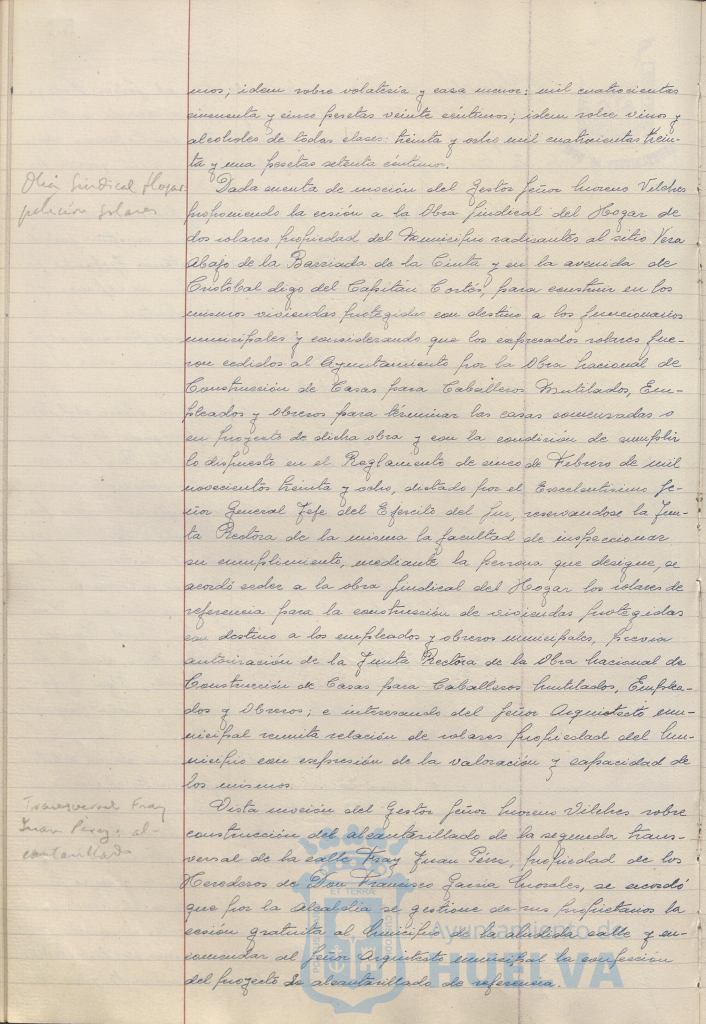 mos; idem sobre volatería y casa menor: mil cuatrocientas
cincuenta y cinco pesetas veinte céntimos; idem sobre vinos y
alcoholes de todas clases: treinta y ocho mil cuatrocientas trein-
ta y una pesetas setenta céntimos.
Obra Sindical Hogar
petición solares
Dada cuenta de moción del Gestor Señor Moreno Vilches
proponiendo la cesión a la Obra Sindical del Hogar de
dos solares propiedad del Municipio radicantes al sitio Vera
Abajo de la Barriada de la Cinta y en la avenida de
Cristobal digo del Capitán Cortés, para construir en los
mismos viviendas protegidas con destino a los funcionarios
municipales y considerando que los expresados solares fue-
ron cedidos al Ayuntamiento por la Obra Nacional de
Construcción de Casas para Caballeros Mutilados, Em-
pleados y Obreros para terminar las casas comenzadas o
en proyecto de dicha obra y con la condición de cumplir
lo dispuesto en el Reglamento de cinco de Febrero de mil
novecientos treinta y ocho, dictado por el Excelentísimo Se-
ñor General Jefe del Ejercito del Sur, reservandose la Jun-
ta Rectora de la misma la facultad de inspeccionar
su cumplimiento, mediante la persona que designe, se
acordó ceder a la obra Sindical del Hogar los solares de
referencia para la construcción de viviendas protegidas
con destino a los empleados y obreros municipales, previa
autorización de la Junta Rectora de la Obra Nacional de
Construcción de Casas para Caballeros Mutilados, Emplea-
dos y Obreros; e interesando del Señor Arquitecto mu-
nicipal remita relación de solares propiedad del Mu-
nicipio con expresión de la valoración y capacidad de
los mismos.
Transversal Fray
Juan Pérez: al-
cantarillado
Vista moción del Gestor Señor Moreno Vilches sobre
construcción del alcantarillado de la segunda trans-
versal de la calle Fray Juan Pérez, propiedad de los
Herederos de Don Francisco Garcia Morales, se acordó
que por la Alcaldía se gestione de sus propietarios la
cesión gratuita al Municipio de la aludida calle y en-
comendar al Señor Arquitecto municipal la confección
del proyecto de alcantarillado de referencia.
Ayuntamiento de
HUELVA